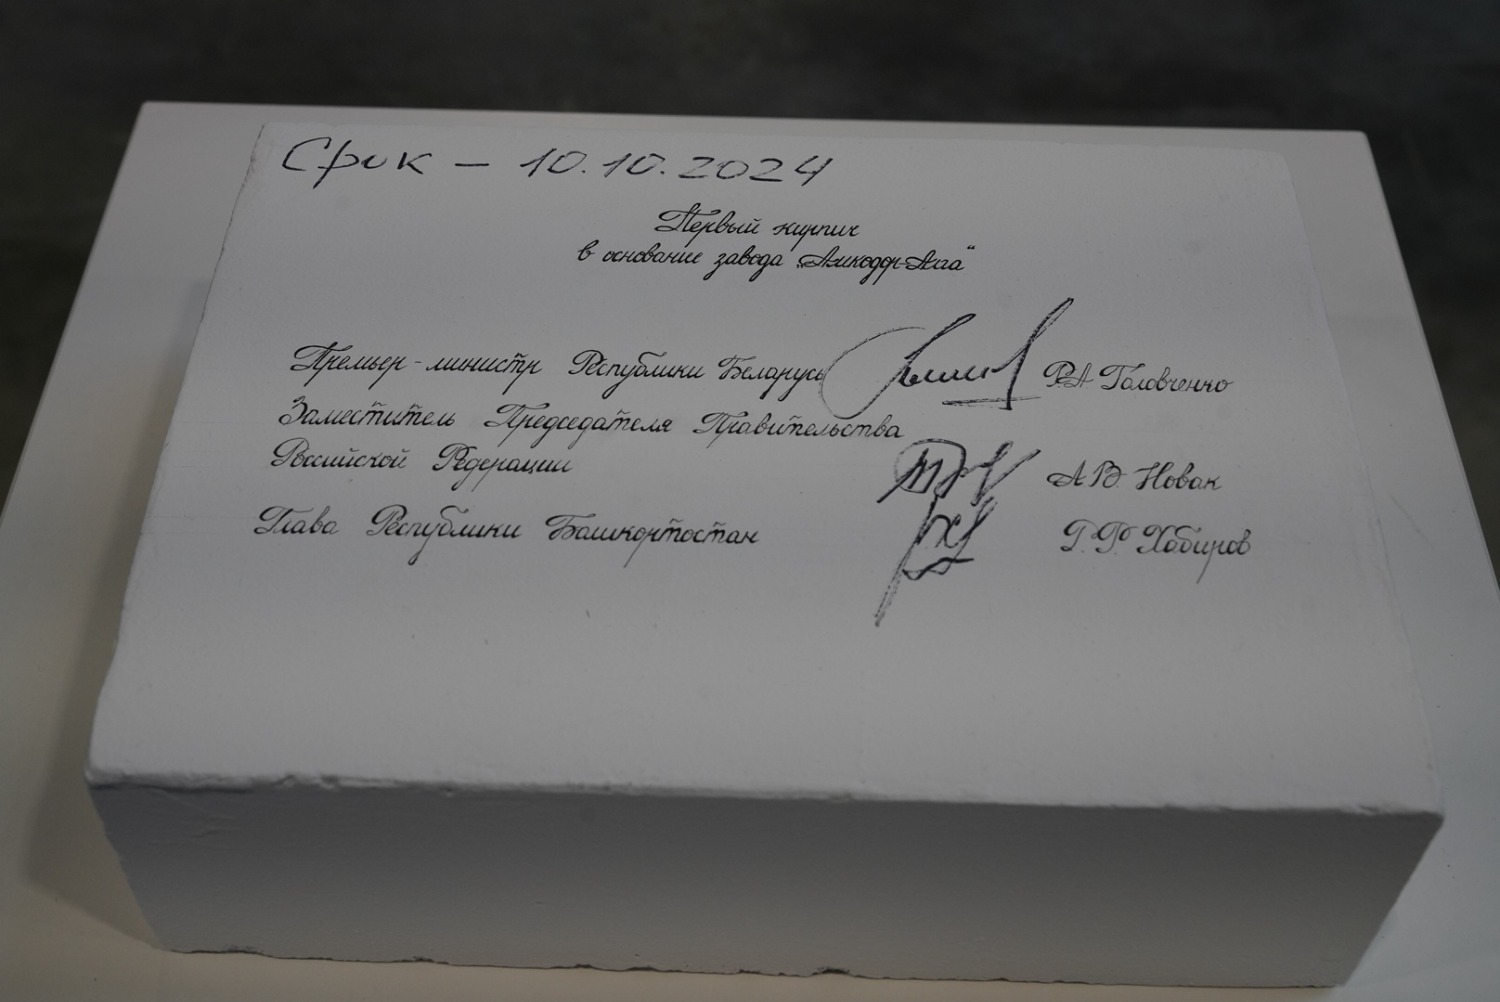 Срок – 10.10.2024
Первый кирпич
в основание завода „Амкодор-Агга“
Премьер-министр Республики Беларусь Р.А Головченко
Заместитель Председателя Правительства
Российской Федерации А В. Новак
Глава Республики Башкортостан Р. Ф. Хабиров